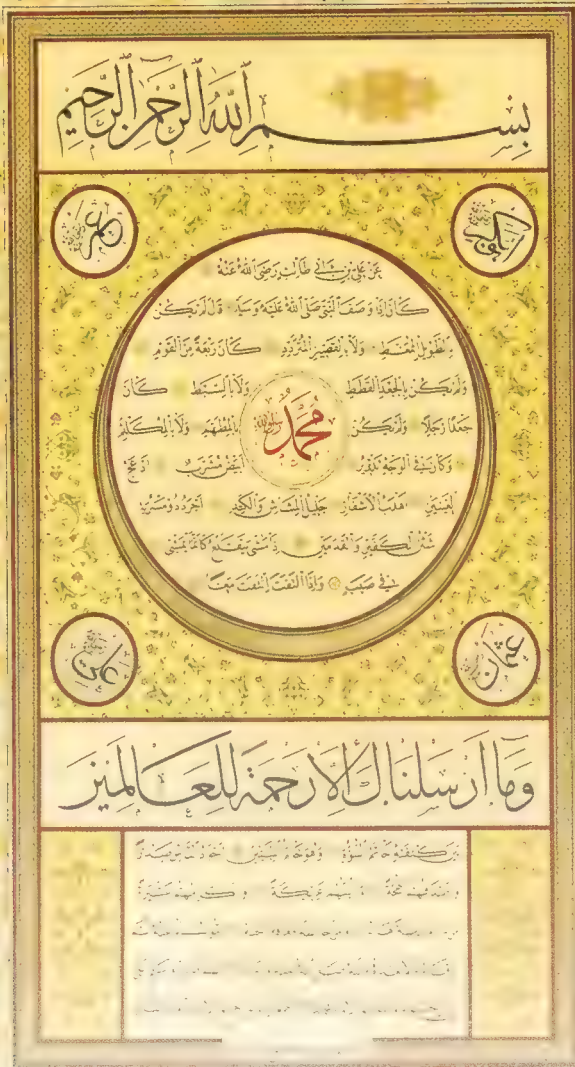 بِسْمِ اللهِ الرَّحْمنِ الرَّحِيمِ
ابوبكر
عمر
عَنْ عَلِيِّ بْنِ أَبِي طَالِبٍ رَضِيَ اللهُ عَنْهُ
كَانَ إِذَا وَصَفَ النَّبِيَّ صَلَّى اللهُ عَلَيْهِ وَسَلَّمَ قَالَ لَمْ يَكُنْ
بِالطَّوِيلِ الْمُمَّغِطِ وَلَا بِالْقَصِيرِ الْمُتَرَدِّدِ كَانَ رَبْعَةً مِنَ الْقَوْمِ
وَلَمْ يَكُنْ بِالْجَعْدِ الْقَطَطِ وَلَا بِالسَّبِطِ كَانَ
مُحَمَّدٌ
جَعْدًا رَجِلًا وَلَمْ يَكُنْ بِالْمُطَهَّمِ وَلَا بِالْمُكَلْثَمِ
وَكَانَ فِي الْوَجْهِ تَدْوِيرٌ أَبْيَضُ مُشْرَبٌ أَدْعَجُ
الْعَيْنَيْنِ أَهْدَبُ الْأَشْفَارِ جَلِيلُ الْمُشَاشِ وَالْكَتَدِ أَجْرَدُ ذُو مَسْرُبَةٍ
شَثْنُ الْكَفَّيْنِ وَالْقَدَمَيْنِ إِذَا مَشَى يَتَقَلَّعُ كَأَنَّمَا يَمْشِي
فِي صَبَبٍ وَإِذَا الْتَفَتَ الْتَفَتَ مَعًا
عثمان
على
وَمَا أَرْسَلْنَاكَ إِلَّا رَحْمَةً لِلْعَالَمِينَ
بَيْنَ كَتِفَيْهِ خَاتَمُ النُّبُوَّةِ وَهُوَ خَاتَمُ النَّبِيِّينَ أَجْوَدُ النَّاسِ صَدْرًا